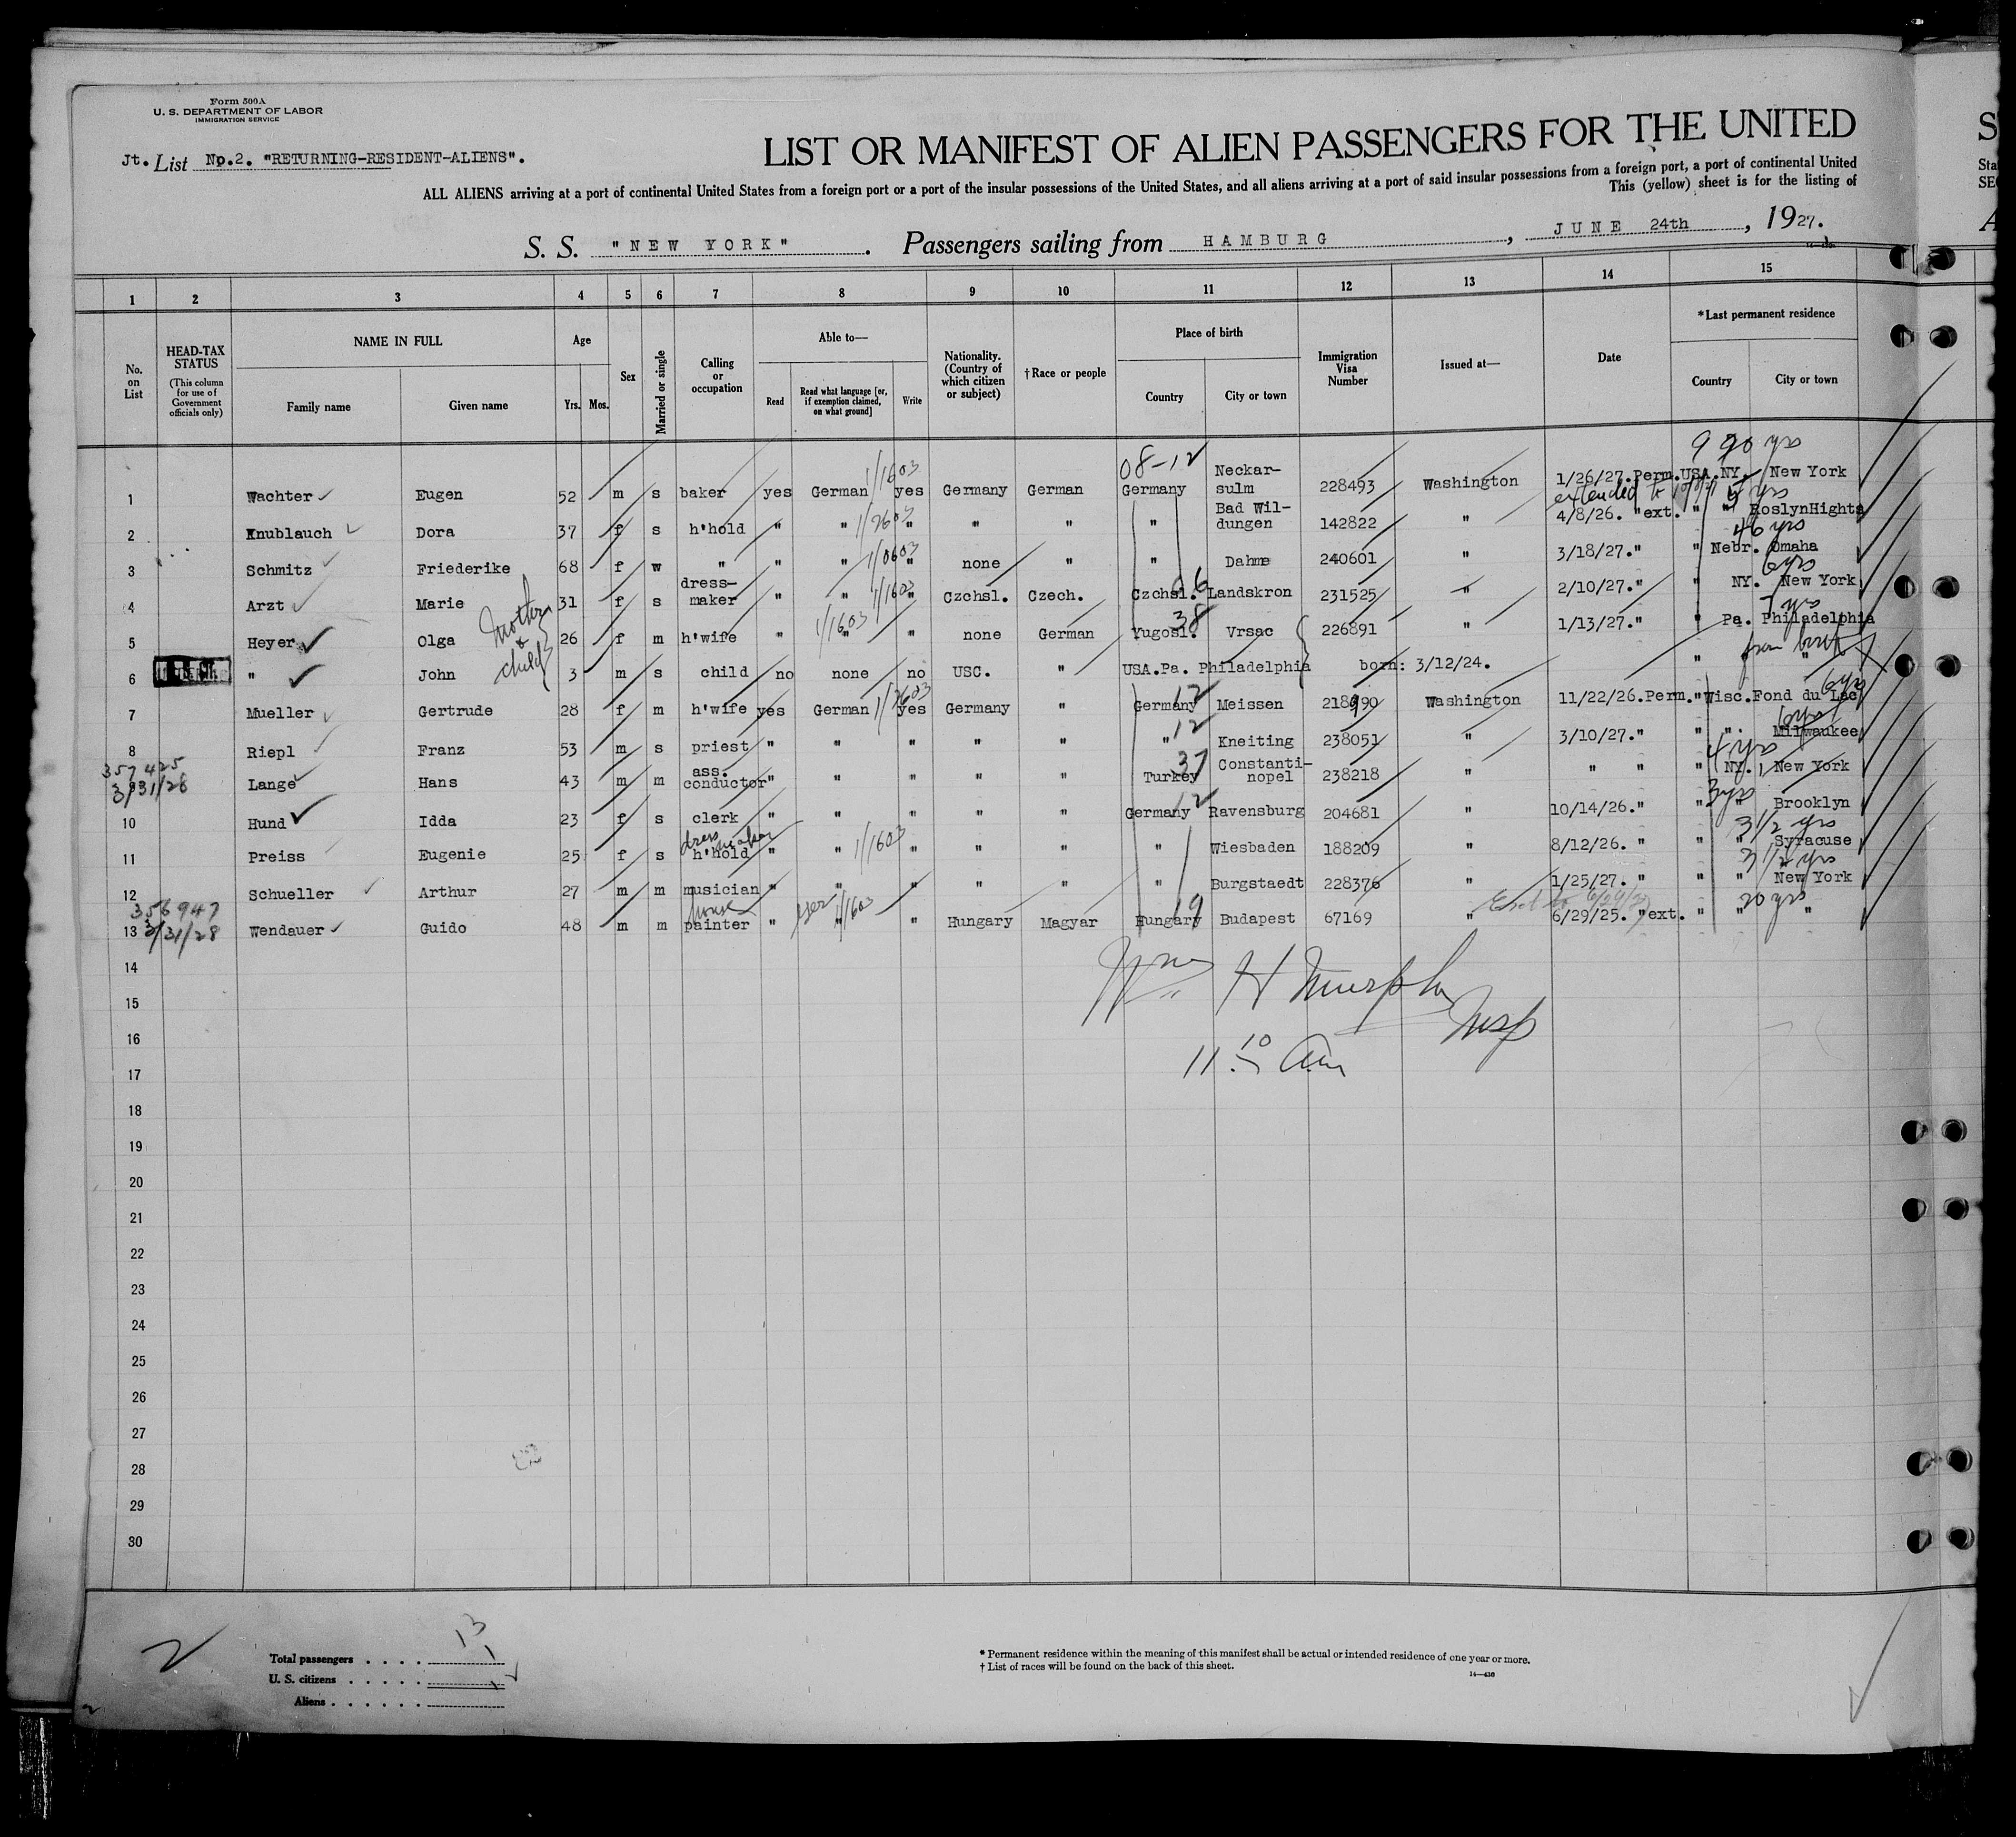 Form 500A
U. S. DEPARTMENT OF LABOR
IMMIGRATION SERVICE
Jt. List No.2. "RETURNING-RESIDENT-ALIENS".
LIST OR MANIFEST OF ALIEN PASSENGERS FOR THE UNITED
ALL ALIENS arriving at a port of continental United States from a foreign port or a port of the insular possessions of the United States, and all aliens arriving at a port of said insular possessions from a foreign port, a port of continental United
This (yellow) sheet is for the listing of
S. S. "NEW YORK". Passengers sailing from HAMBURG, JUNE 24th, 1927.
1 2 3 4 5 6 7 8 9 10 11 12 13 14 15
No. on List
HEAD-TAX STATUS (This column for use of Government officials only)
NAME IN FULL Family name Given name
Age Yrs. Mos.
Sex
Married or single
Calling or occupation
Able to— Read Read what language [or, if exemption claimed, on what ground] Write
Nationality. (Country of which citizen or subject)
†Race or people
Place of birth Country City or town
Immigration Visa Number
Issued at—
Date
*Last permanent residence Country City or town
08-12 20 yrs
1 Wachter Eugen 52 m s baker yes German 1/1603 yes Germany German Germany Neckar-sulm 228493 Washington 1/26/27.Perm.USA.NY. New York
extended to yrs
2 Knublauch Dora 37 f s h'hold " " 1/2603 " " " " Bad Wil-dungen 142822 " 4/8/26. "ext. " " RoslynHights
46 yrs
3 Schmitz Friederike 68 f w " " " 1/0603 " none " " Dahme 240601 " 3/18/27." " Nebr. Omaha
6 yrs
4 Arzt Marie 31 f s dress-maker " " 1/1603 " Czchsl. Czech. Czchsl. 6 Landskron 231525 " 2/10/27." " NY. New York
mother & child
5 Heyer Olga 26 f m h'wife " 1/1603 " " none German Yugosl. 38 Vrsac 226891 " 1/13/27." " Pa. Philadelphia
from birth
6 " John 3 m s child no none no USC. " USA.Pa. Philadelphia born: 3/12/24. " "
6 yrs
7 Mueller Gertrude 28 f m h'wife yes German 1/2603 yes Germany " Germany 12 Meissen 218990 Washington 11/22/26.Perm."Wisc.Fond du Lac
6 yrs
8 Riepl Franz 53 m s priest " " " " " " 12 Kneiting 238051 " 3/10/27." " ". Milwaukee
357425
3/31/28
4 yrs
Lange Hans 43 m m ass. conductor " " " " " Turkey 37 Constanti-nopel 238218 " " " " NY. New York
3 yrs
10 Hund Idda 23 f s clerk " " " " " Germany 12 Ravensburg 204681 " 10/14/26." " " Brooklyn
dress maker
3 1/2 yrs
11 Preiss Eugenie 25 f s h'hold " " 1/1603 " " " " Wiesbaden 188209 " 8/12/26. " " " Syracuse
3 1/2 yrs
12 Schueller Arthur 27 m m musician " " " " " " Burgstaedt 228376 " 1/25/27. " " " New York
356947
3/31/28
house
20 yrs
13 Wendauer Guido 48 m m painter " " 1/1603 " Hungary Magyar Hungary 19 Budapest 67169 " 6/29/25. "ext. " " "
Wm H Murphy
Insp
11.10 am
14
15
16
17
18
19
20
21
22
23
24
25
26
27
28
29
30
2
Total passengers 13
U. S. citizens 1
Aliens
* Permanent residence within the meaning of this manifest shall be actual or intended residence of one year or more.
† List of races will be found on the back of this sheet.
14—430